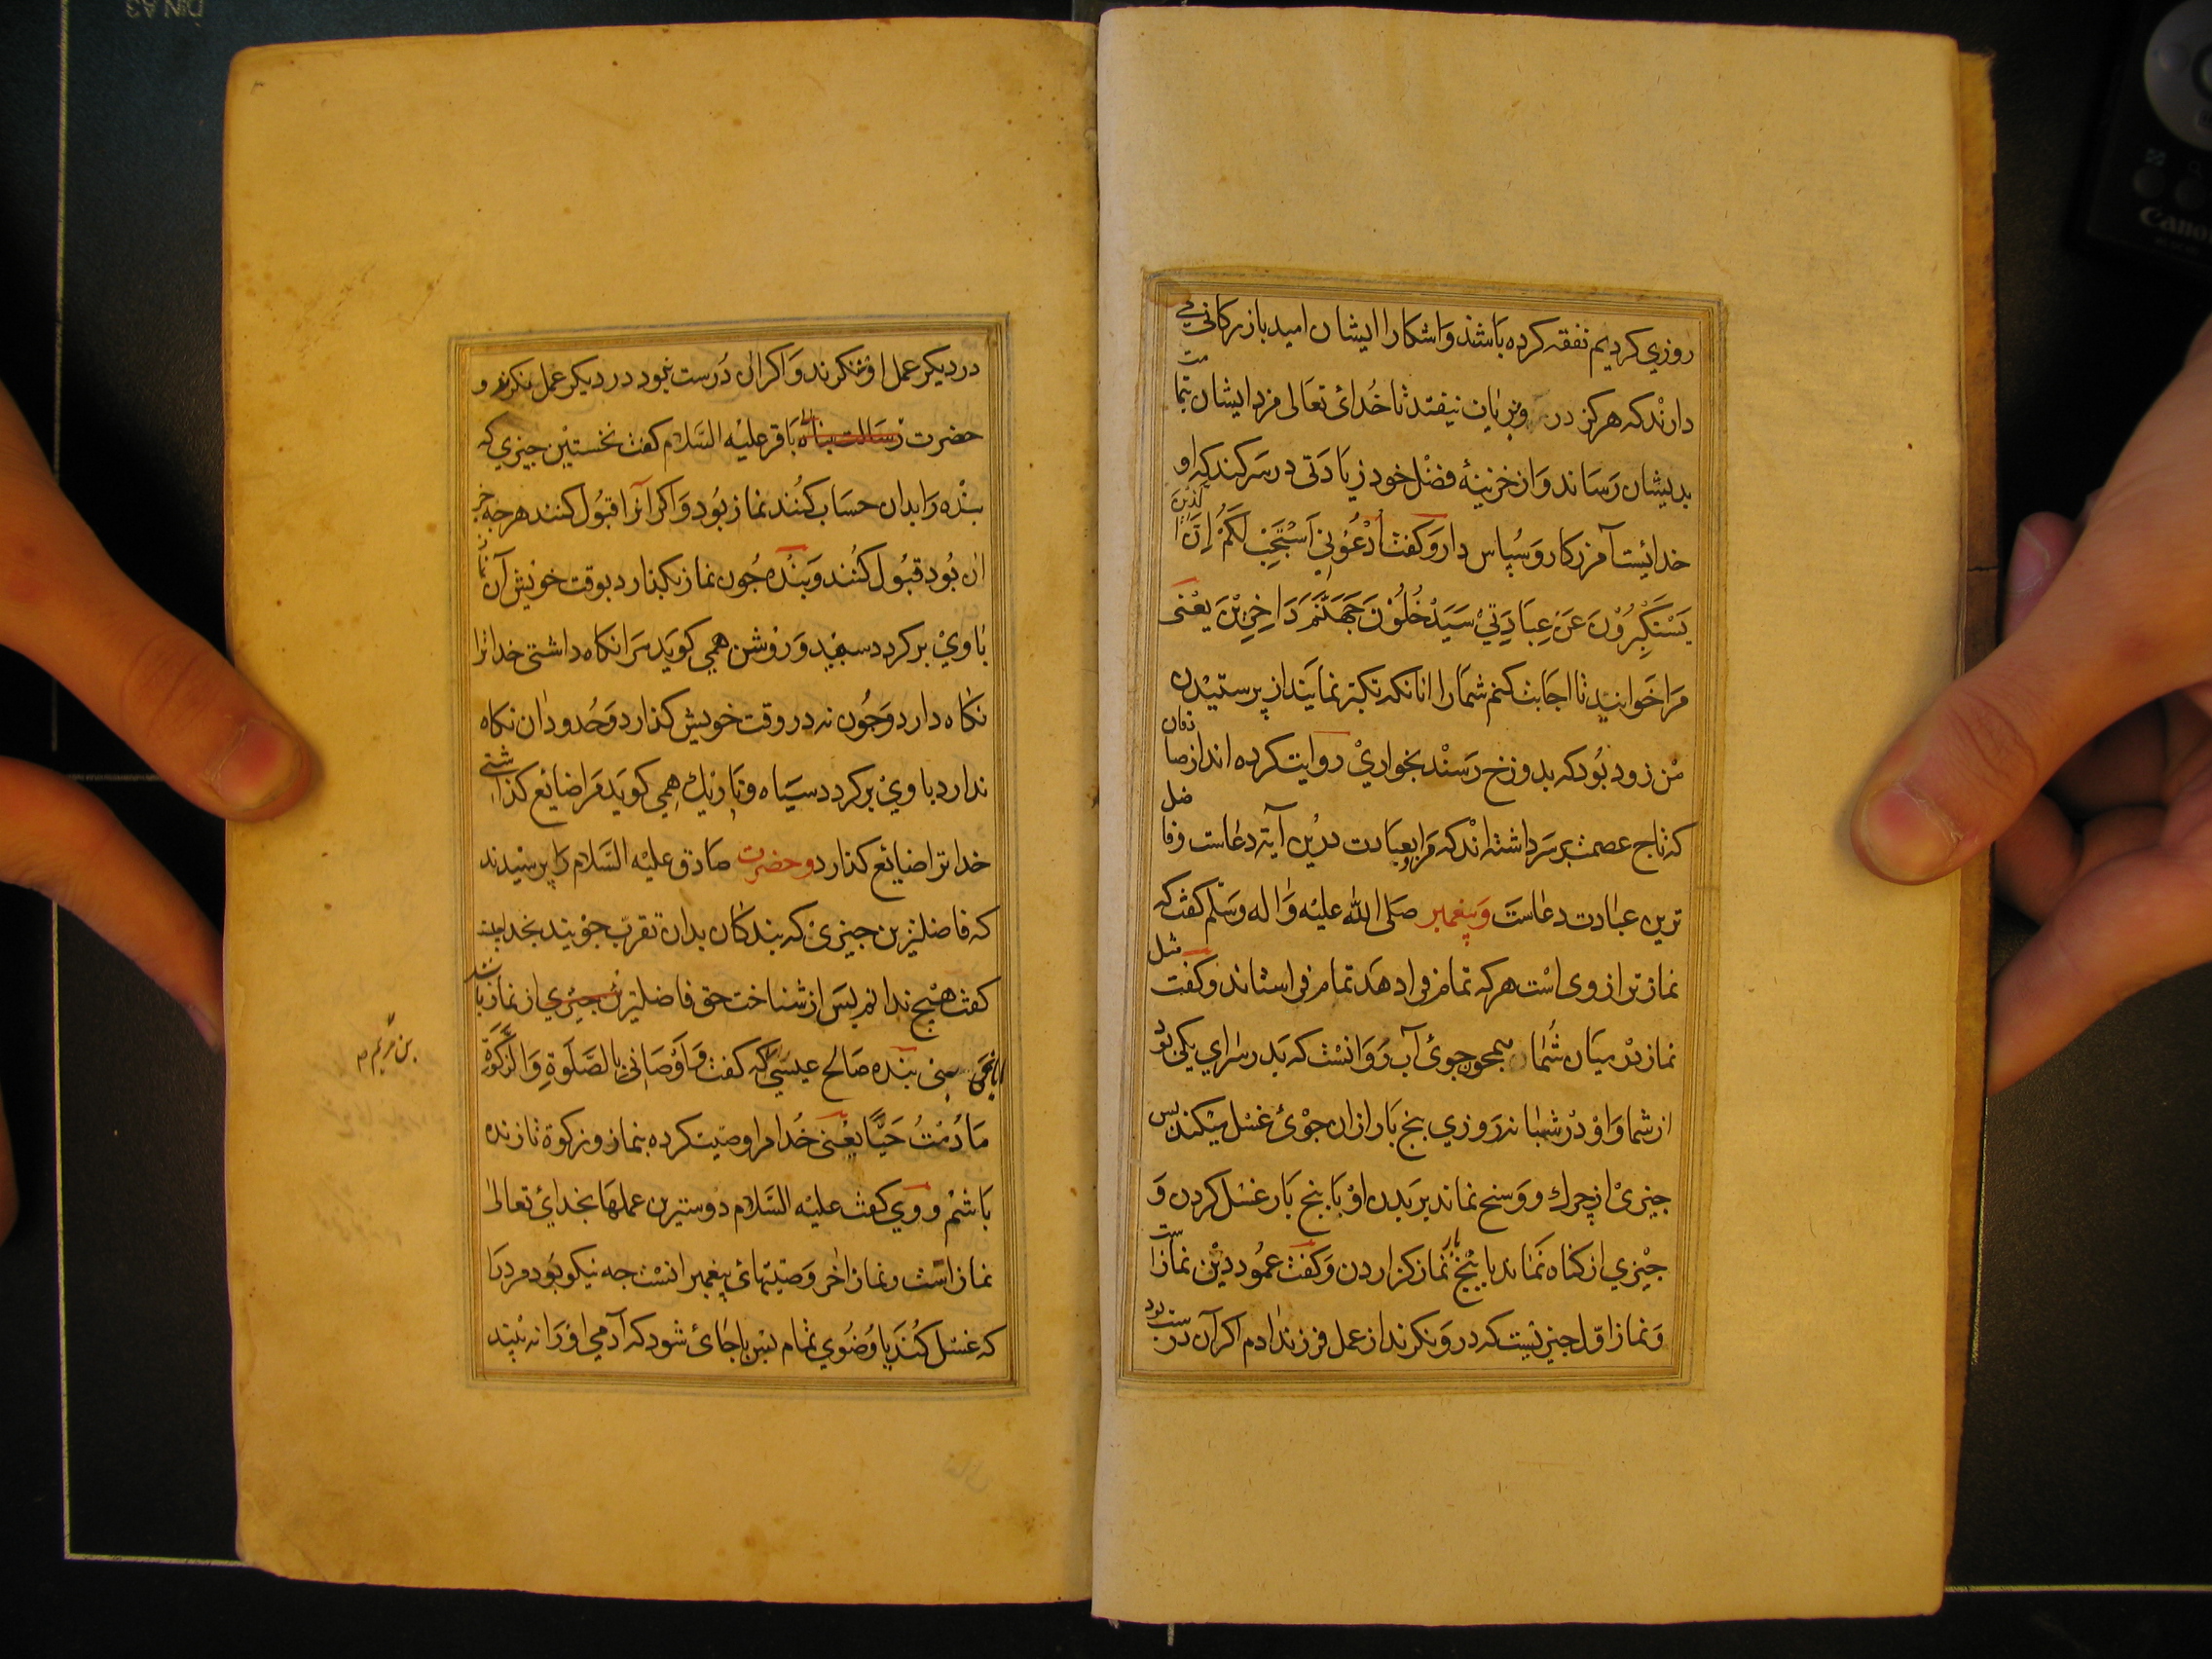 روزي كرديم نفقه كرده باشند واشكارا ايشان اميد بازركانى مى
دارند كه هركز در وى زيان نيفتد تا خداى تعالى مزد ايشان بتما مت
بديشان رساند واز خزينهٔ فضل خود زيادتى در سر كند كه او
خدائيست آمرزكار وسپاس دار وكفت اُدْعُوْنِي اَسْتَجِبْ لَكُمْ اِنَّ الَّذِيْنَ
يَسْتَكْبِرُوْنَ عَنْ عِبَادَتِيْ سَيَدْخُلُوْنَ جَهَنَّمَ دَاخِرِيْنَ يعْنى
مرا خوانيد تا اجابت كنم شمارا انانكه تكبّر نمايند از پرستيدن
من زود بود كه بدوزخ رسند بخواري روايت كرده اند از صا دقان
كه تاج عصمت بر سر داشته اند كه مراد بعبادت درين آية دعاست وفا ضل
ترين عبادت دعاست وپيغمبر صلى الله عليه واله وسلّم كفت كه
نماز ترازوى است هركه تمام فرا دهد تمام فرا ستاند وكفت مثل
نماز در ميان شما همچون جوئ آب روانست كه بدر سراي يكى بود
از شما واو در شبانروزي پنج بار از ان جوئ غسل ميكند پس
چيزى از چرك ووسخ نماند بر بدن او با پنج بار غسل كردن و
چيزي از كناه نماند با پنج بار نماز كزاردن وكفت عمود دين نمازا ست
ونماز اوّل چيزيست كه درو نكرند از عمل فرزند ادم اكر آن درست بود
در ديكر عمل او نكرند واكر ان درست نبود در ديكر عمل نكرند و
حضرت رسالت پناه باقر عليه السّلام كفت نخستين چيزي كه
بنده را بدان حساب كنند نماز بود واكر انرا قبول كنند هرچه جز
ان بود قبول كنند وبنده چون نماز بكذارد بوقت خويش آن نماز
باوي بركردد سفيد وروشن همي كويد مرا نكاه داشتى خدا ترا
نكاه دارد وچون نه در وقت خويش كذارد وحدود ان نكاه
ندارد باوي بركردد سياه وتاريك همي كويد مرا ضايع كذاشتى
خدا ترا ضايع كذارد وحضرت صادق عليه السّلام را پرسيدند
كه فاضلترين چيزى كه بندكان بدان تقرب جويند بخدا چيست
كفت هيچ ندانم پس از شناخت حق فاضلترين چيزي از نماز باشد
نمى بينى بنده صالح عيسى كه كفت وَاَوْصَانِي بِالصَّلٰوةِ وَالزَّكٰوةِ
بن مريم م
مَا دُمْتُ حَيًّا يعنى خدا مرا وصيّت كرده بنماز وزكوة تا زنده
باشم ووي كفت عليه السّلام دوستترين عملها بخداي تعالى
نماز است ونماز اخر وصيّتهاى پيغمبر انست چه نيكو بود مرد را
كه غسل كند يا وضوي تمام پس با جائ شود كه آدمي او را نه بيند